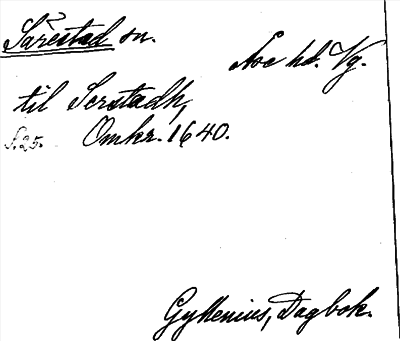 Särestad sn.
Åse hd. Vg.
til Serstadh,
S.25. Omkr. 1640.
Gyllenius, Dagbok.